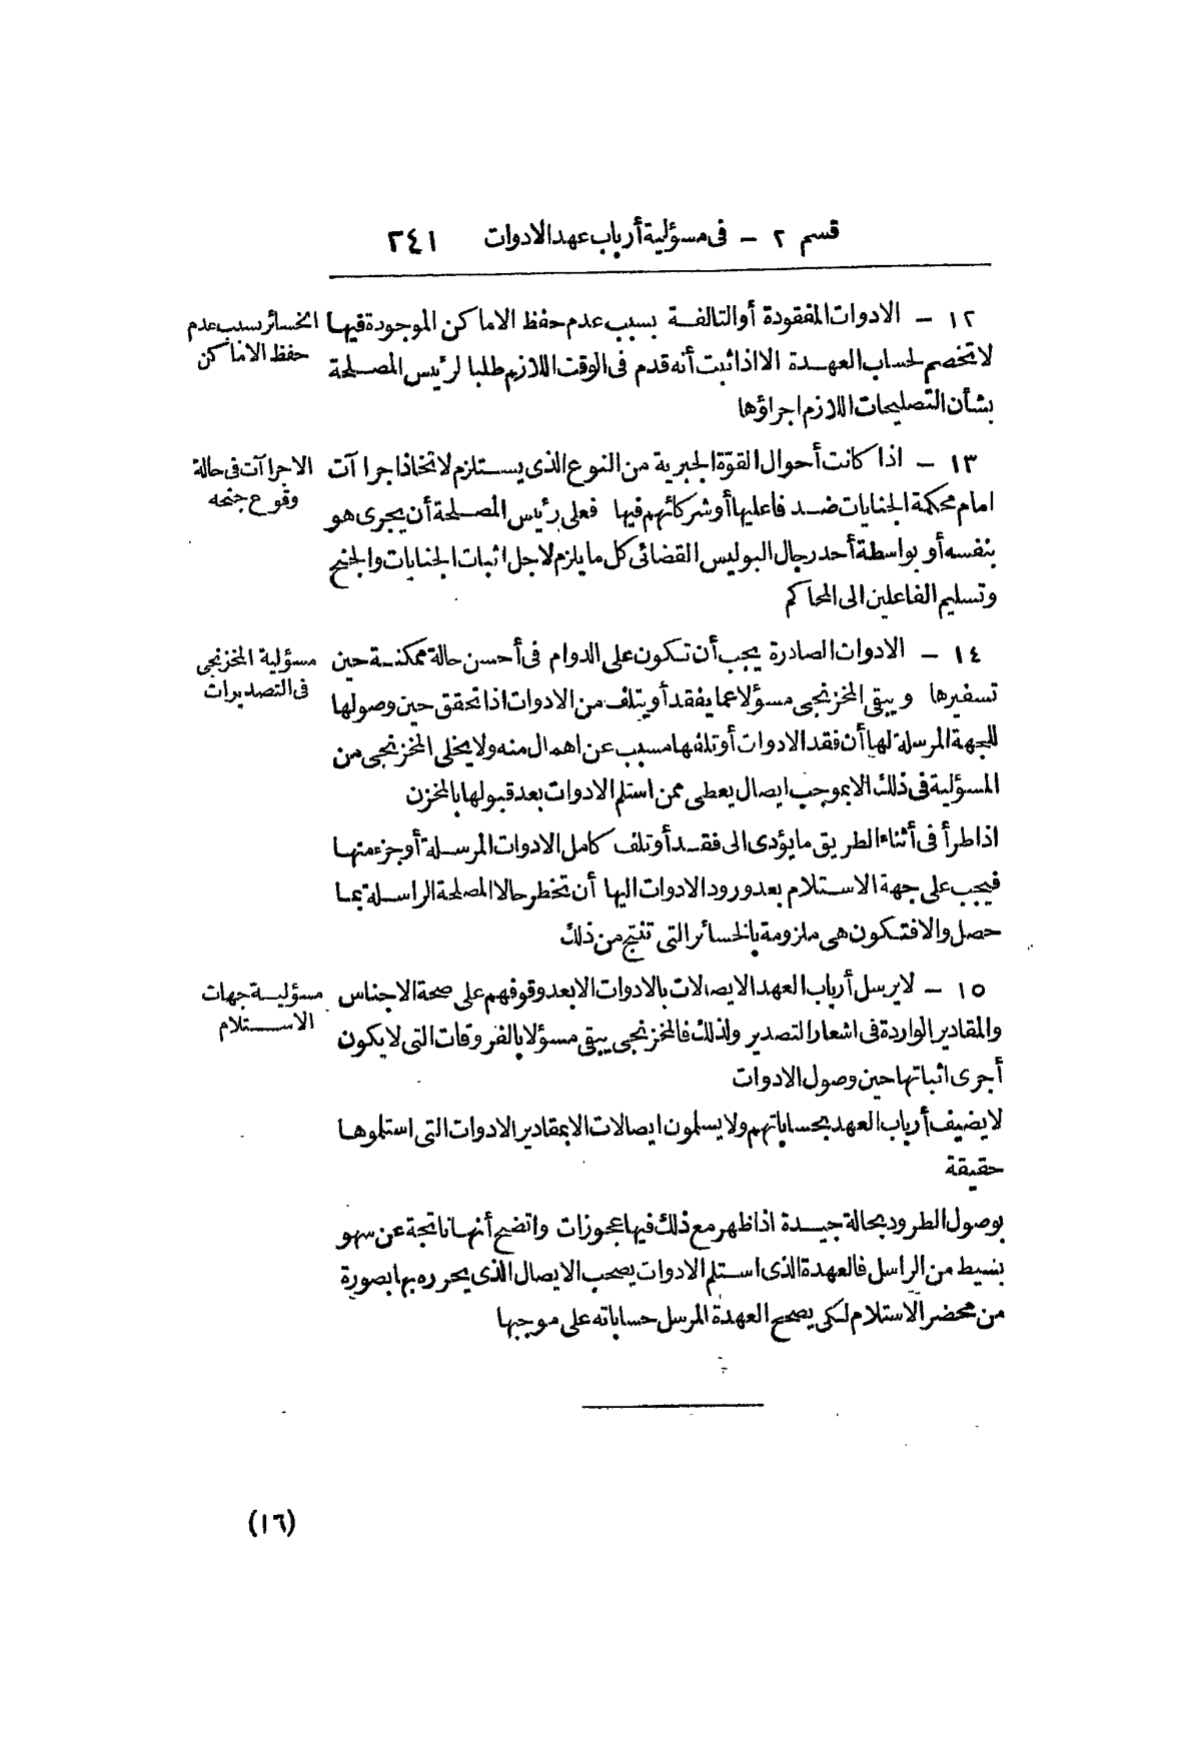 قسم ٢ – فى مسؤلية أرباب عهد الادوات ٢٤١
١٢ – الادوات المفقودة أو التالفة بسبب عدم حفظ الاماكن الموجودة فيها
الخسائر بسبب عدم
لا تخصم لحساب العهدة الا اذا ثبت أنه قدم فى الوقت اللازم طلبا لرئيس المصلحة
حفظ الاماكن
بشأن التصليحات اللازم اجراؤها
١٣ – اذا كانت أحوال القوّة الجبرية من النوع الذى يستلزم لاتخاذ اجراآت
الاجراآت فى حالة
امام محكمة الجنايات ضد فاعليها أو شركائهم فيها فعلى رئيس المصلحة أن يجرى هو
وقوع جنحه
بنفسه أو بواسطة أحد رجال البوليس القضائى كل ما يلزم لاجل اثبات الجنايات والجنح
وتسليم الفاعلين الى المحاكم
١٤ – الادوات الصادرة يجب أن تكون على الدوام فى أحسن حالة ممكنة حين
مسؤلية المخزنجى
تسفيرها ويبقى المخزنجى مسؤلا عما يفقد أو يتلف من الادوات اذا تحقق حين وصولها
فى التصديرات
للجهة المرسلة لها أن فقد الادوات أو تلفها مسبب عن اهمال منه ولا يخلى المخزنجى من
المسؤلية فى ذلك الا بموجب ايصال يعطى ممن استلم الادوات بعد قبولها بالمخزن
اذا طرأ فى أثناء الطريق ما يؤدى الى فقد أو تلف كامل الادوات المرسلة أو جزء منها
فيجب على جهة الاستلام بعد ورود الادوات اليها أن تخطر حالا المصلحة الراسلة بما
حصل والا فتكون هى ملزومة بالخسائر التى تنتج من ذلك
١٥ – لا يرسل أرباب العهد الايصالات بالادوات الا بعد وقوفهم على صحة الاجناس
مسؤلية جهات
والمقادير الواردة فى اشعار التصدير ولذلك فالمخزنجى يبقى مسؤلا بالفروقات التى لا يكون
الاستلام
أجرى اثباتها حين وصول الادوات
لا يضيف أرباب العهد بحساباتهم ولا يسلمون ايصالات الا بمقادير الادوات التى استلموها
حقيقة
بوصول الطرود بحالة جيدة اذا ظهر مع ذلك فيها عجوزات واتضح أنها ناتجة عن سهو
بسيط من الراسل فالعهدة الذى استلم الادوات يصحب الايصال الذى يحرره بها بصورة
من محضر الاستلام لكى يصحح العهدة المرسل حساباته على موجبها
(١٦)